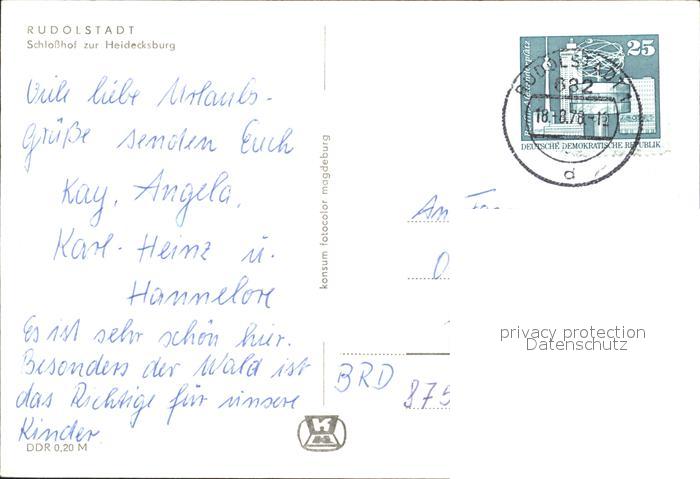 RUDOLSTADT
Schloßhof zur Heidecksburg
Viele liebe Urlaubs-
Grüße senden Euch
Kay, Angela,
Karl-Heinz u.
Hannelore
Es ist sehr schön hier.
Besonders der Wald ist
das Richtige für unsere
Kinder.
DDR 0,20 M
konsum fotocolor magdeburg
K
25
DEUTSCHE DEMOKRATISCHE REPUBLIK
RUDOLSTADT 1
682
18.-8.78.-15
d
An
BRD
875
privacy protection
Datenschutz